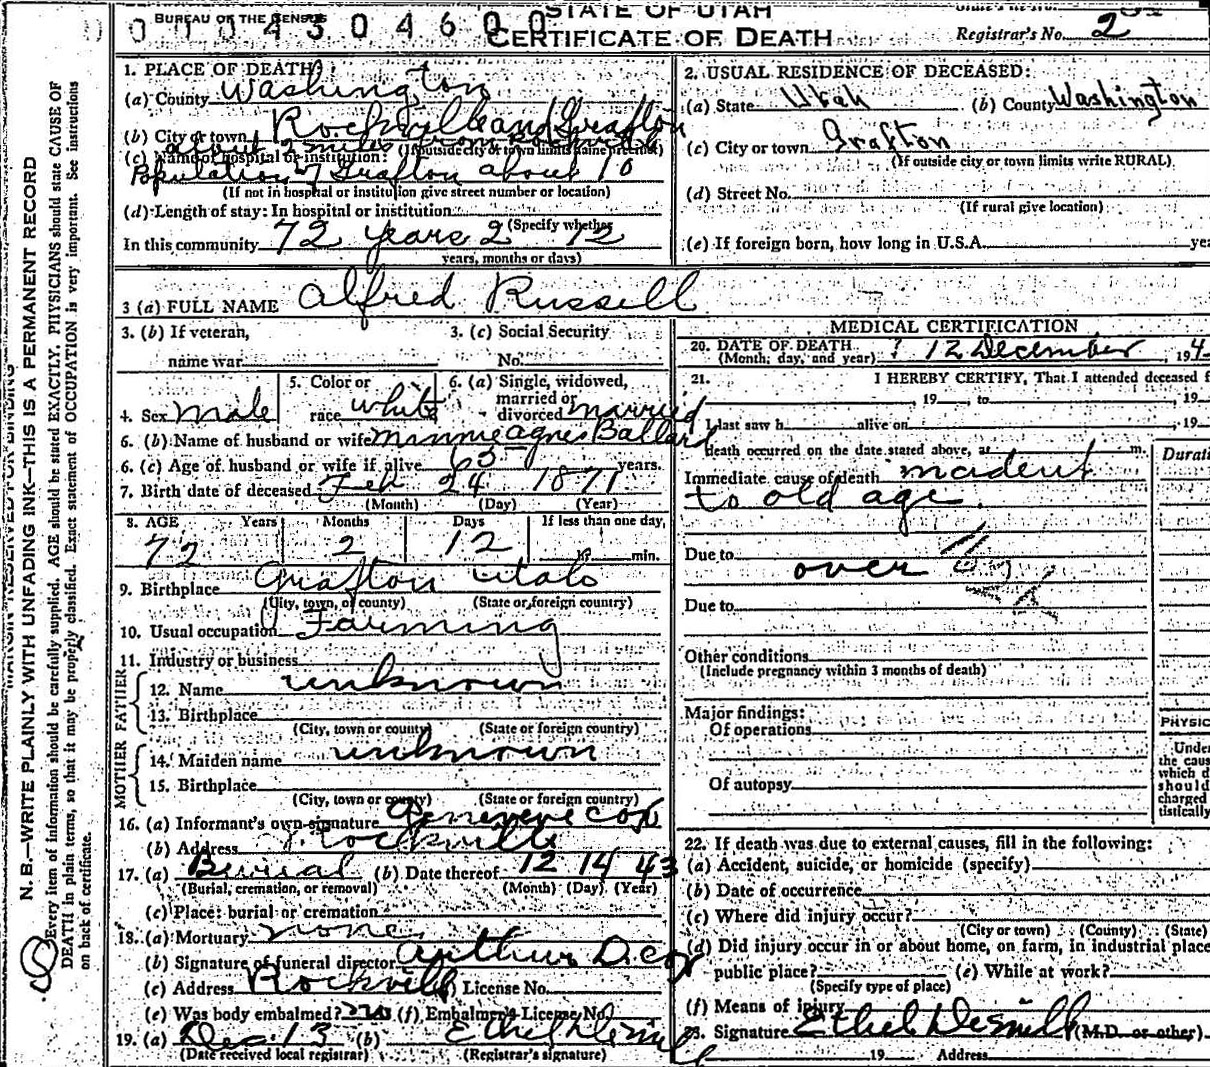 BUREAU OF THE CENSUS
0 0 0 4 3 0 4 6 0 0
STATE OF UTAH
CERTIFICATE OF DEATH
Registrar's No. 2
1. PLACE OF DEATH:
(a) County Washington
(b) City or town Rockville and Grafton
about 2 miles from Rockville
(If outside city or town limits name precinct)
(c) Name of hospital or institution:
Population of Grafton about 10
(If not in hospital or institution give street number or location)
(d) Length of stay: In hospital or institution
(Specify whether
In this community 72 years 2 12
years, months or days)
2. USUAL RESIDENCE OF DECEASED:
(a) State Utah (b) County Washington
(c) City or town Grafton
(If outside city or town limits write RURAL)
(d) Street No.
(If rural give location)
(e) If foreign born, how long in U.S.A. yea
3 (a) FULL NAME Alfred Russell
3. (b) If veteran,
name war
3. (c) Social Security
No.
4. Sex male
5. Color or
race white
6. (a) Single, widowed,
married or
divorced married
6. (b) Name of husband or wife Minnie Agnes Ballard
6. (c) Age of husband or wife if alive 63 years.
7. Birth date of deceased Feb 24 1871
(Month) (Day) (Year)
8. AGE Years Months Days If less than one day,
72 2 12 hr. min.
9. Birthplace Grafton Utah
(City, town, or county) (State or foreign country)
10. Usual occupation Farming
11. Industry or business
FATHER
12. Name unknown
13. Birthplace
(City, town or county) (State or foreign country)
MOTHER
14. Maiden name unknown
15. Birthplace
(City, town or county) (State or foreign country)
16. (a) Informant's own signature Genevieve Cox
(b) Address Rockville
17. (a) Burial (b) Date thereof 12 14 43
(Burial, cremation, or removal) (Month) (Day) (Year)
(c) Place: burial or cremation
18. (a) Mortuary none
(b) Signature of funeral director Arthur D. Cox
(c) Address Rockville License No.
(e) Was body embalmed? no (f) Embalmer's License No.
19. (a) Dec. 13 (b) Ethel DeMill
(Date received local registrar) (Registrar's signature)
MEDICAL CERTIFICATION
20. DATE OF DEATH
(Month, day, and year) ? 12 December, 194
21. I HEREBY CERTIFY, That I attended deceased f
, 19 , to , 19
I last saw h alive on , 19
death occurred on the date stated above, at m.
Immediate cause of death
to old age.
Durati
Due to over
Due to
Other conditions
(Include pregnancy within 3 months of death)
Major findings:
Of operations
Of autopsy
PHYSIC
Under
the caus
which d
should
charged
tistically
22. If death was due to external causes, fill in the following:
(a) Accident, suicide, or homicide (specify)
(b) Date of occurrence
(c) Where did injury occur?
(City or town) (County) (State)
(d) Did injury occur in or about home, on farm, in industrial place
public place? (e) While at work?
(Specify type of place)
(f) Means of injury
23. Signature Ethel DeMill (M.D. or other)
19 Address
N. B.—WRITE PLAINLY WITH UNFADING INK—THIS IS A PERMANENT RECORD
Every item of information should be carefully supplied. AGE should be stated EXACTLY. PHYSICIANS should state CAUSE OF
DEATH in plain terms, so that it may be properly classified. Exact statement of OCCUPATION is very important. See instructions
on back of certificate.